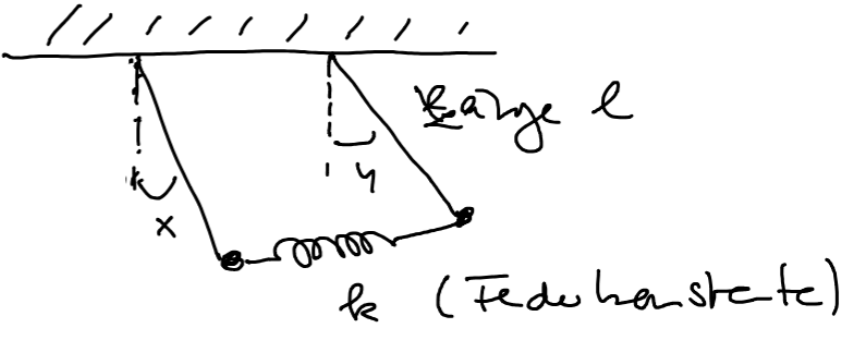 Länge l
x y
k (Federkonstante)